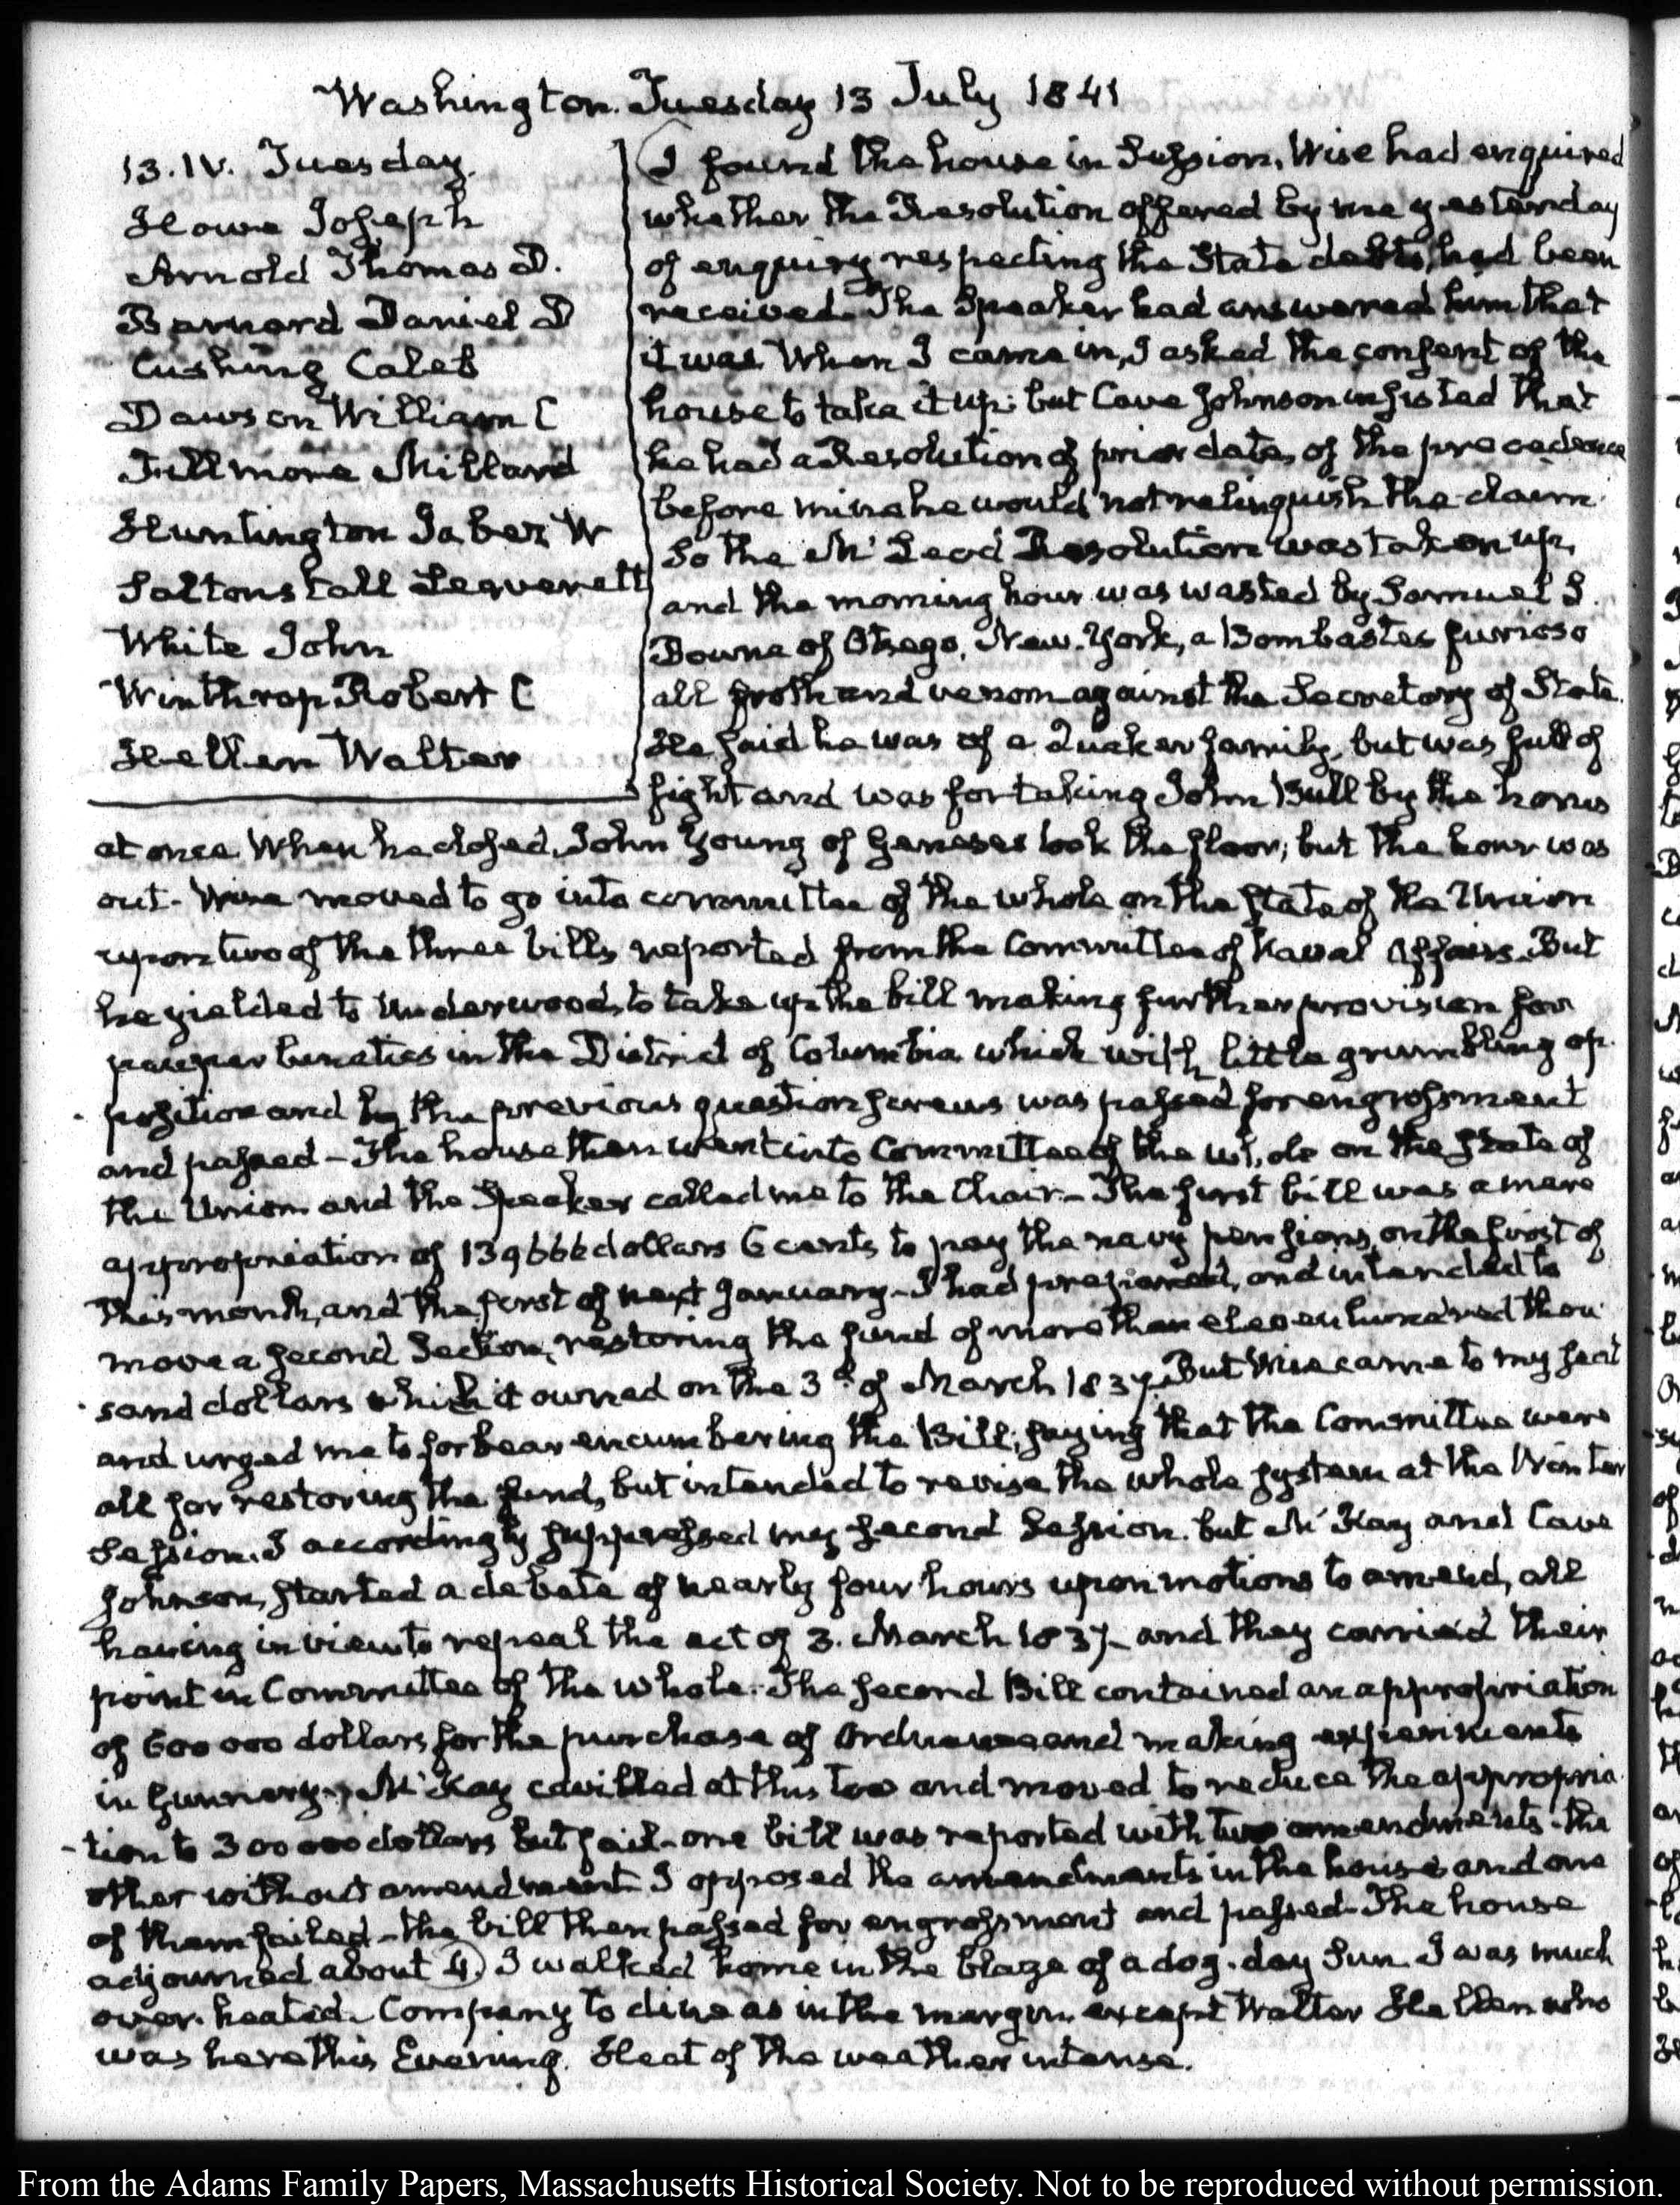 Washington. Tuesday 13 July 1841
13. IV. Tuesday.
Howe Joseph
Arnold Thomas D.
Barnard Daniel D
Cushing Caleb
Dawson William C
Fillmore Millard
Huntington Jabez W
Saltonstall Leverett
White John
Winthrop Robert C
Hellen Walter
I found the house in Session. Wise had enquired
whether the Resolution offered by me yesterday
of enquiry respecting the State debts, had been
received. The Speaker had answered him that
it was. When I came in, I asked the consent of the
house to take it up: but Cave Johnson insisted that
he had a Resolution of prior date, of the precedence
before mine he would not relinquish the claim.
So the McLeod Resolution was taken up,
and the morning hour was wasted by Samuel S.
Bowne of Otsego, New-York, a Bombastes furioso
all froth and venom against the Secretary of State.
He said he was of a Quaker family, but was full of
fight and was for taking John Bull by the horns
at once. When he closed, John Young of Genesee took the floor; but the hour was
out- Wise moved to go into committee of the whole on the state of the Union
upon two of the three bills reported from the Committee of Naval Affairs. But
he yielded to Underwood, to take up the bill making further provision for
pauper lunatics in the District of Columbia which with little grumbling op-
position and by the previous question screws was passed for engrossment
and passed - The house then went into Committee of the whole on the state of
the Union and the Speaker called me to the Chair - The first bill was a mere
appropriation of 139666 dollars 6 cents to pay the navy pensions, on the first of
this month, and the first of next January - I had prepared, and intended to
move a second Section, restoring the fund of more than eleven hundred thou-
sand dollars which it owned on the 3d. of March 1837. But Wise came to my seat
and urged me to forbear encumbering the Bill; saying that the Committee were
all for restoring the fund, but intended to revise the whole system at the Winter
Session. I accordingly suppressed my second Session. but McKay and Cave
Johnson, started a debate of nearly four hours upon motions to amend, all
having in view to repeal the act of 3. March 1837- and they carried their
point in Committee of the whole. The second Bill contained an appropriation
of 600 000 dollars for the purchase of Ordnance and making experiments
in Gunnery. McKay cavilled at this too and moved to reduce the appropria-
tion to 300 000 dollars but fail- one bill was reported with two amendments - the
other without amendment. I opposed the amendments in the house and one
of them failed - the bill then passed for engrossment and passed - The house
adjourned about 4. I walked home in the blaze of a dog-day Sun. I was much
over-heated. Company to dine as in the margin. except Walter Hellen who
was here this Evening. Heat of the weather intense.
From the Adams Family Papers, Massachusetts Historical Society. Not to be reproduced without permission.